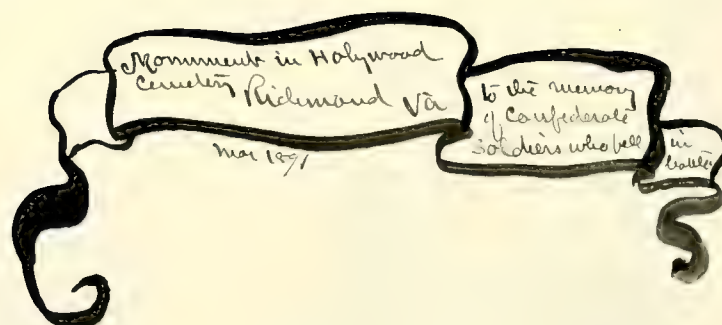 Monument in Holywood
Cemetery Richmond Va
to the memory
of Confederate
soldiers who fell
in
battle
Mar 1891